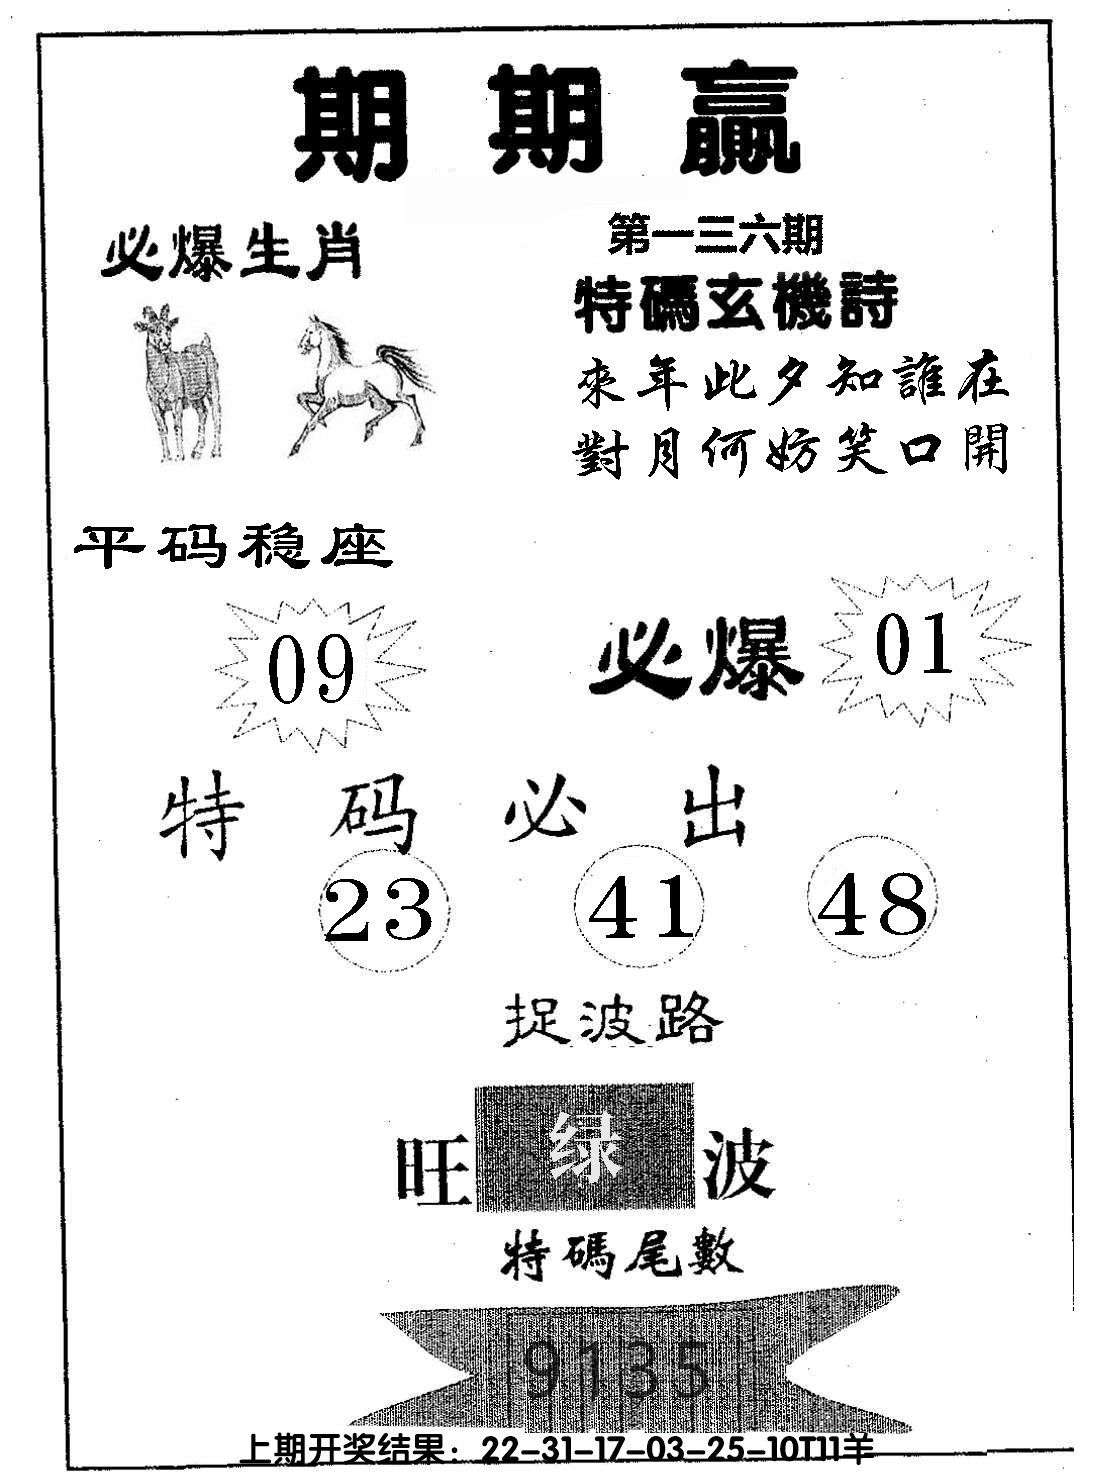 期期贏
必爆生肖
第一三六期
特碼玄機詩
來年此夕知誰在
對月何妨笑口開
平码稳座
09
必爆 01
特码必出
23 41 48
捉波路
旺 绿 波
特碼尾數
9135
上期开奖结果：22-31-17-03-25-10T11羊